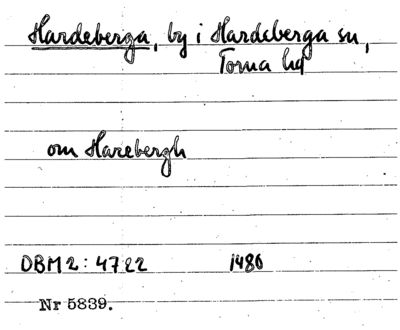 Hardeberga, by i Hardeberga sn,
Torna hd
om Harebergh
DBM 2: 4722 1486
Nr 5839.